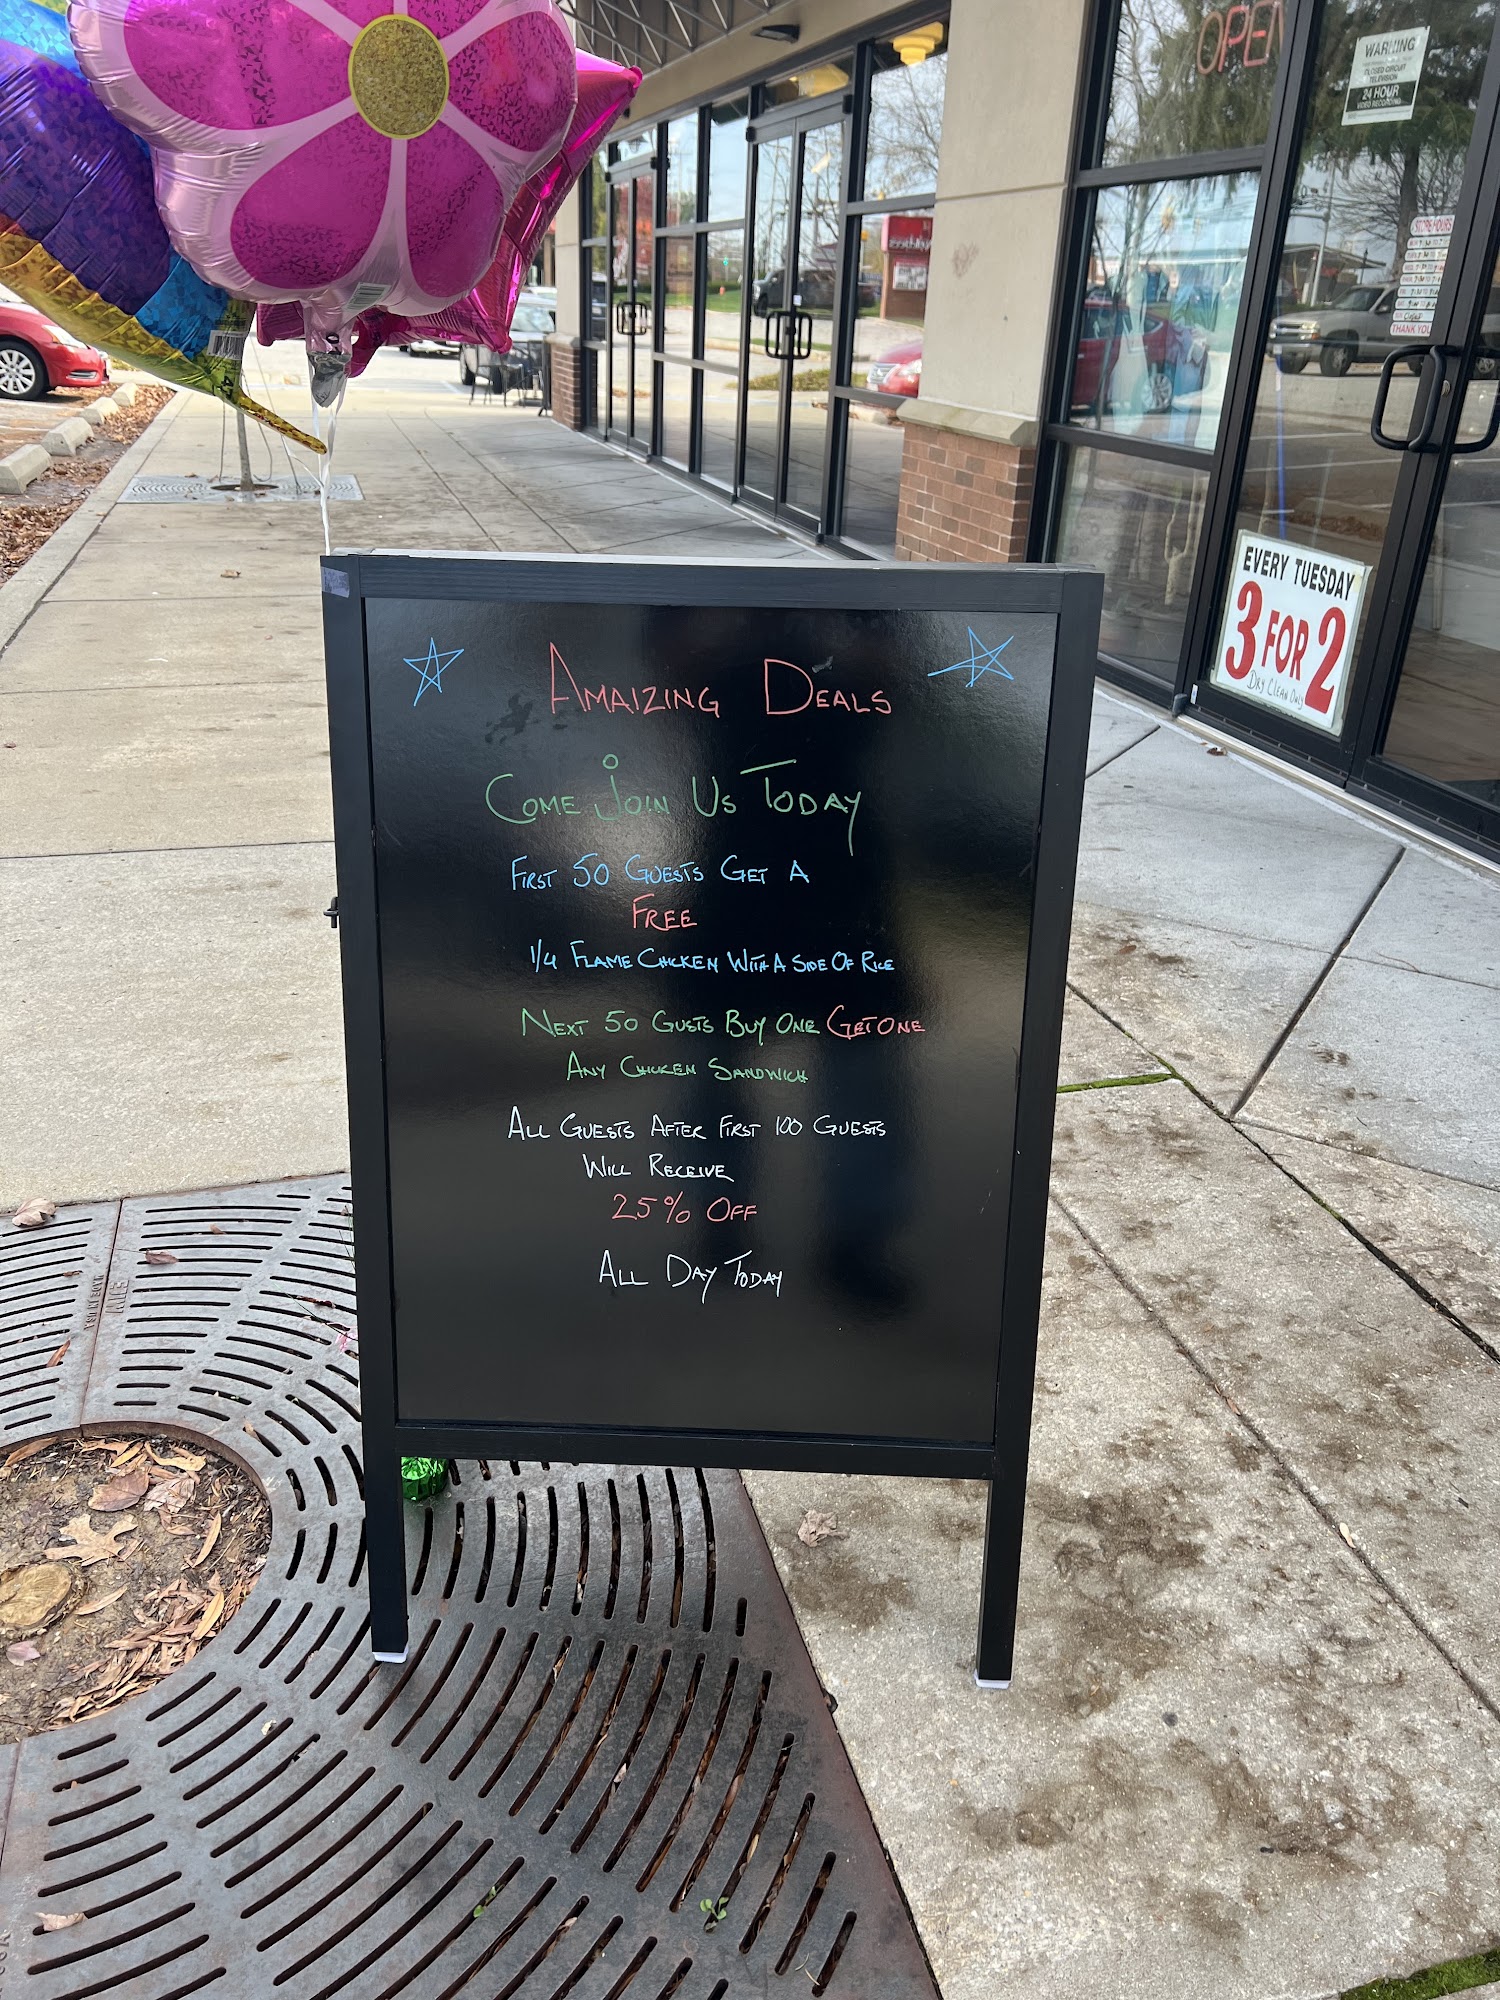 OPEN
WARNING
CLOSED CIRCUIT
TELEVISION
24 HOUR
VIDEO RECORDING
STORE HOURS
THANK YOU
EVERY TUESDAY
3 FOR 2
DRY CLEAN ONLY
AMAIZING DEALS
COME JOIN US TODAY
FIRST 50 GUESTS GET A
FREE
1/4 FLAME CHICKEN WITH A SIDE OF RICE
NEXT 50 GUSTS BUY ONE GET ONE
ANY CHICKEN SANDWICH
ALL GUESTS AFTER FIRST 100 GUESTS
WILL RECEIVE
25% OFF
ALL DAY TODAY